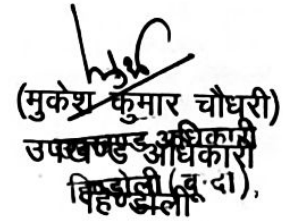 (मुकेश कुमार चौधरी)
उपखण्ड अधिकारी
हिण्डोली (बू.दी),